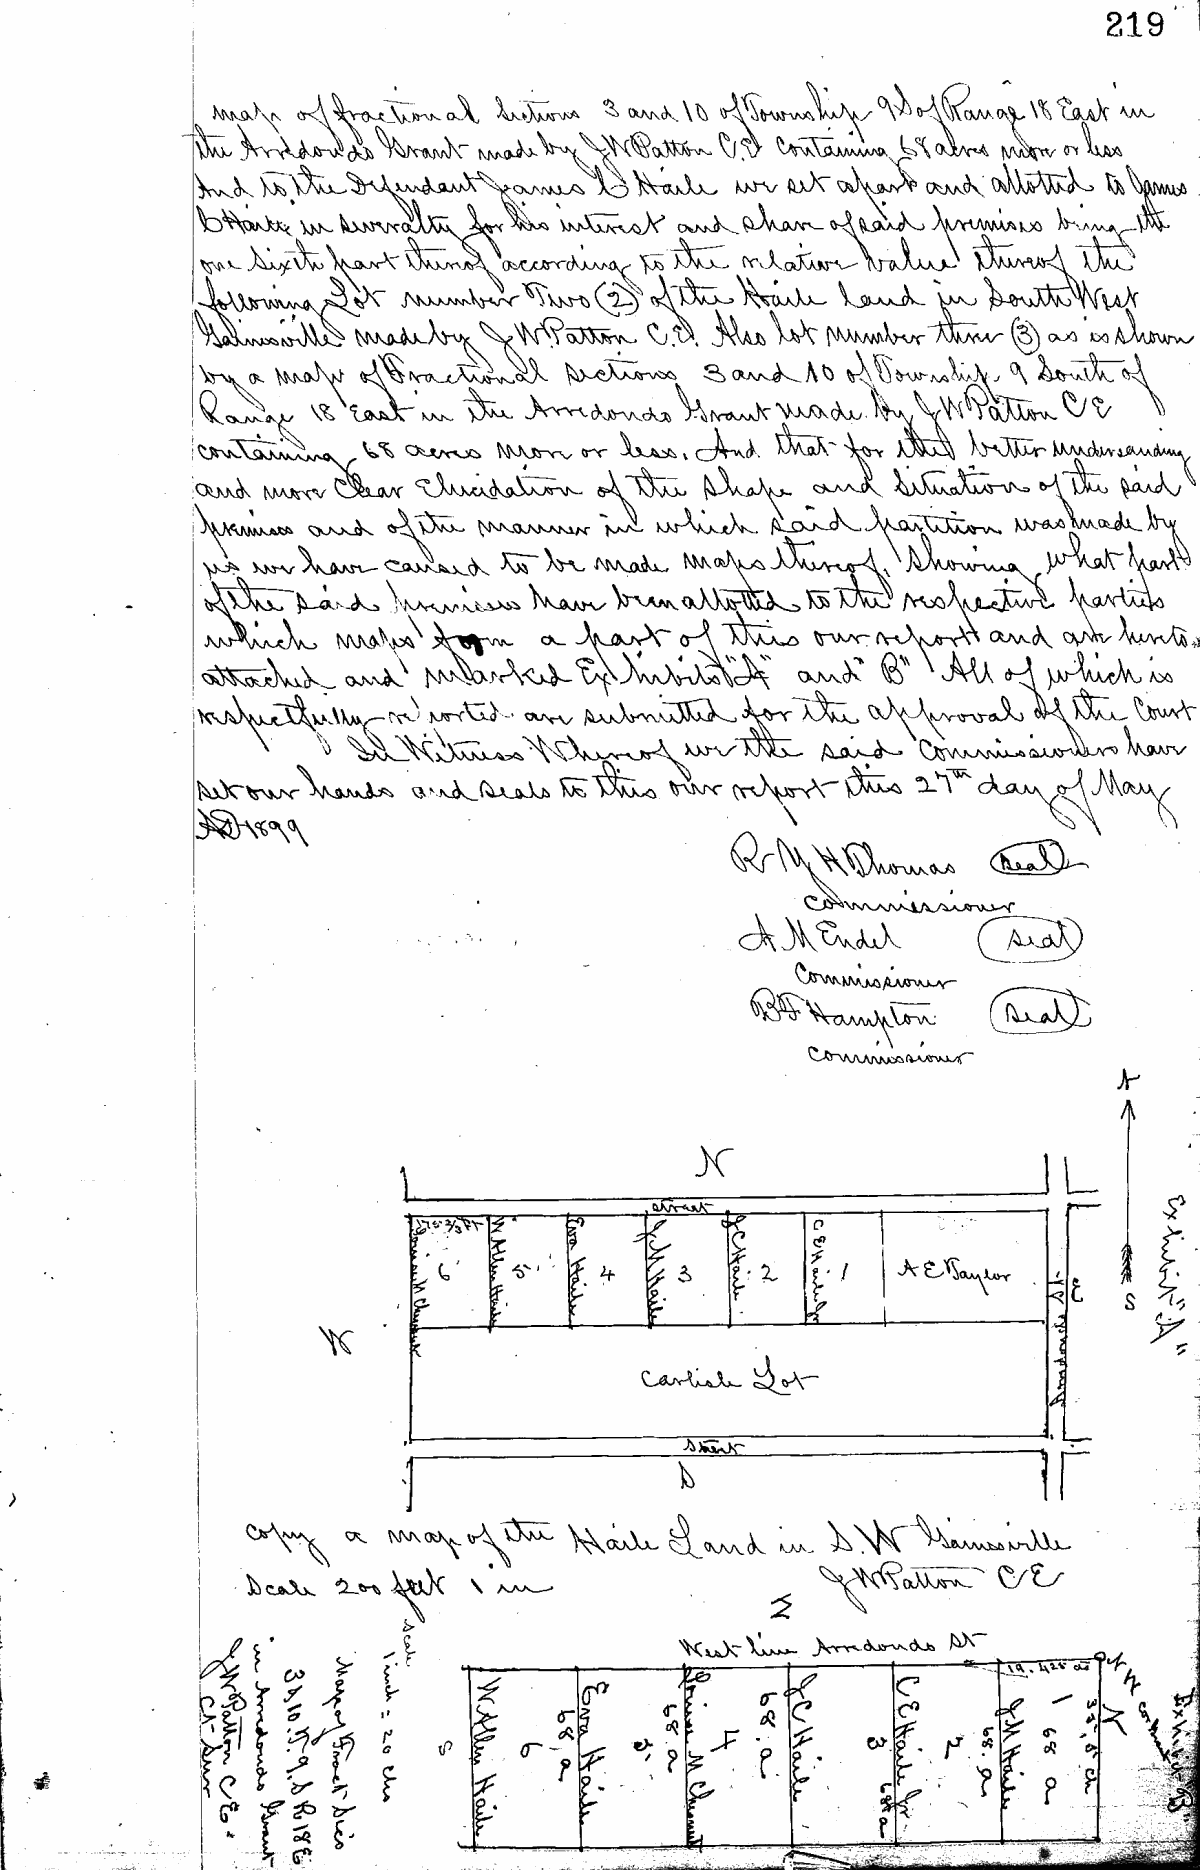 219
map of fractional Sections 3 and 10 of Township 9 S of Range 18 East in
the Arredondo Grant made by J W Patton C.E containing 68 acres more or less
And to the Defendant James C Haile we set apart and allotted to James
C Haile in severalty for his interest and share of said premises being the
one Sixth part thereof according to the relative value thereof the
following Lot number Two (2) of the Haile land in South West
Gainesville made by J W. Patton C.E. Also lot number three (3) as is shown
by a map of Fractional sections 3 and 10 of Township 9 South of
Range 18 East in the Arredondo Grant made by J W Patton C E
containing 68 acres more or less. And that for the better understanding
and more Clear Elucidation of the shape and situation of the said
premises and of the manner in which said partition was made by
us we have caused to be made maps thereof, Showing what part
of the said premises have been allotted to the respective parties
which maps form a part of this our report and are hereto
attached and marked Exhibits "A" and "B" All of which is
respectfully reported are submitted for the approval of the Court
In Witness Whereof we the said Commissioners have
set our hands and seals to this our report this 27th day of May
AD 1899
R Y H Thomas seal
commissioner
A M Endel seal
Commissioner
B F Hampton seal
commissioner
N
S
Exhibit "A"
N
Street
175 2/3 ft
Louise M Chesnut
6
W Allen Haile
5
Eva Haile
4
J M Haile
3
J C Haile
2
C E Haile Jr
1
A E Taylor
W
Arredondo St
Carlisle Lot
Street
S
copy a map of the Haile Land in S. W Gainesville
Scale 200 feet 1 in
J W Patton C E
West line Arredondo St
19.425
N W corner
N
Exhibit B
1
68 a
J M Haile
68. a
2
C E Haile Jr.
68 a
3
J C Haile
68. a
4
Louise M Chesnut
68. a
5
Eva Haile
68. a
6
W Allen Haile
S
Scale
1 inch = 20 chs
Map of Fract Secs
3 & 10. T. 9. S R 18 E
in Arredondo Grant
J W Patton C E.